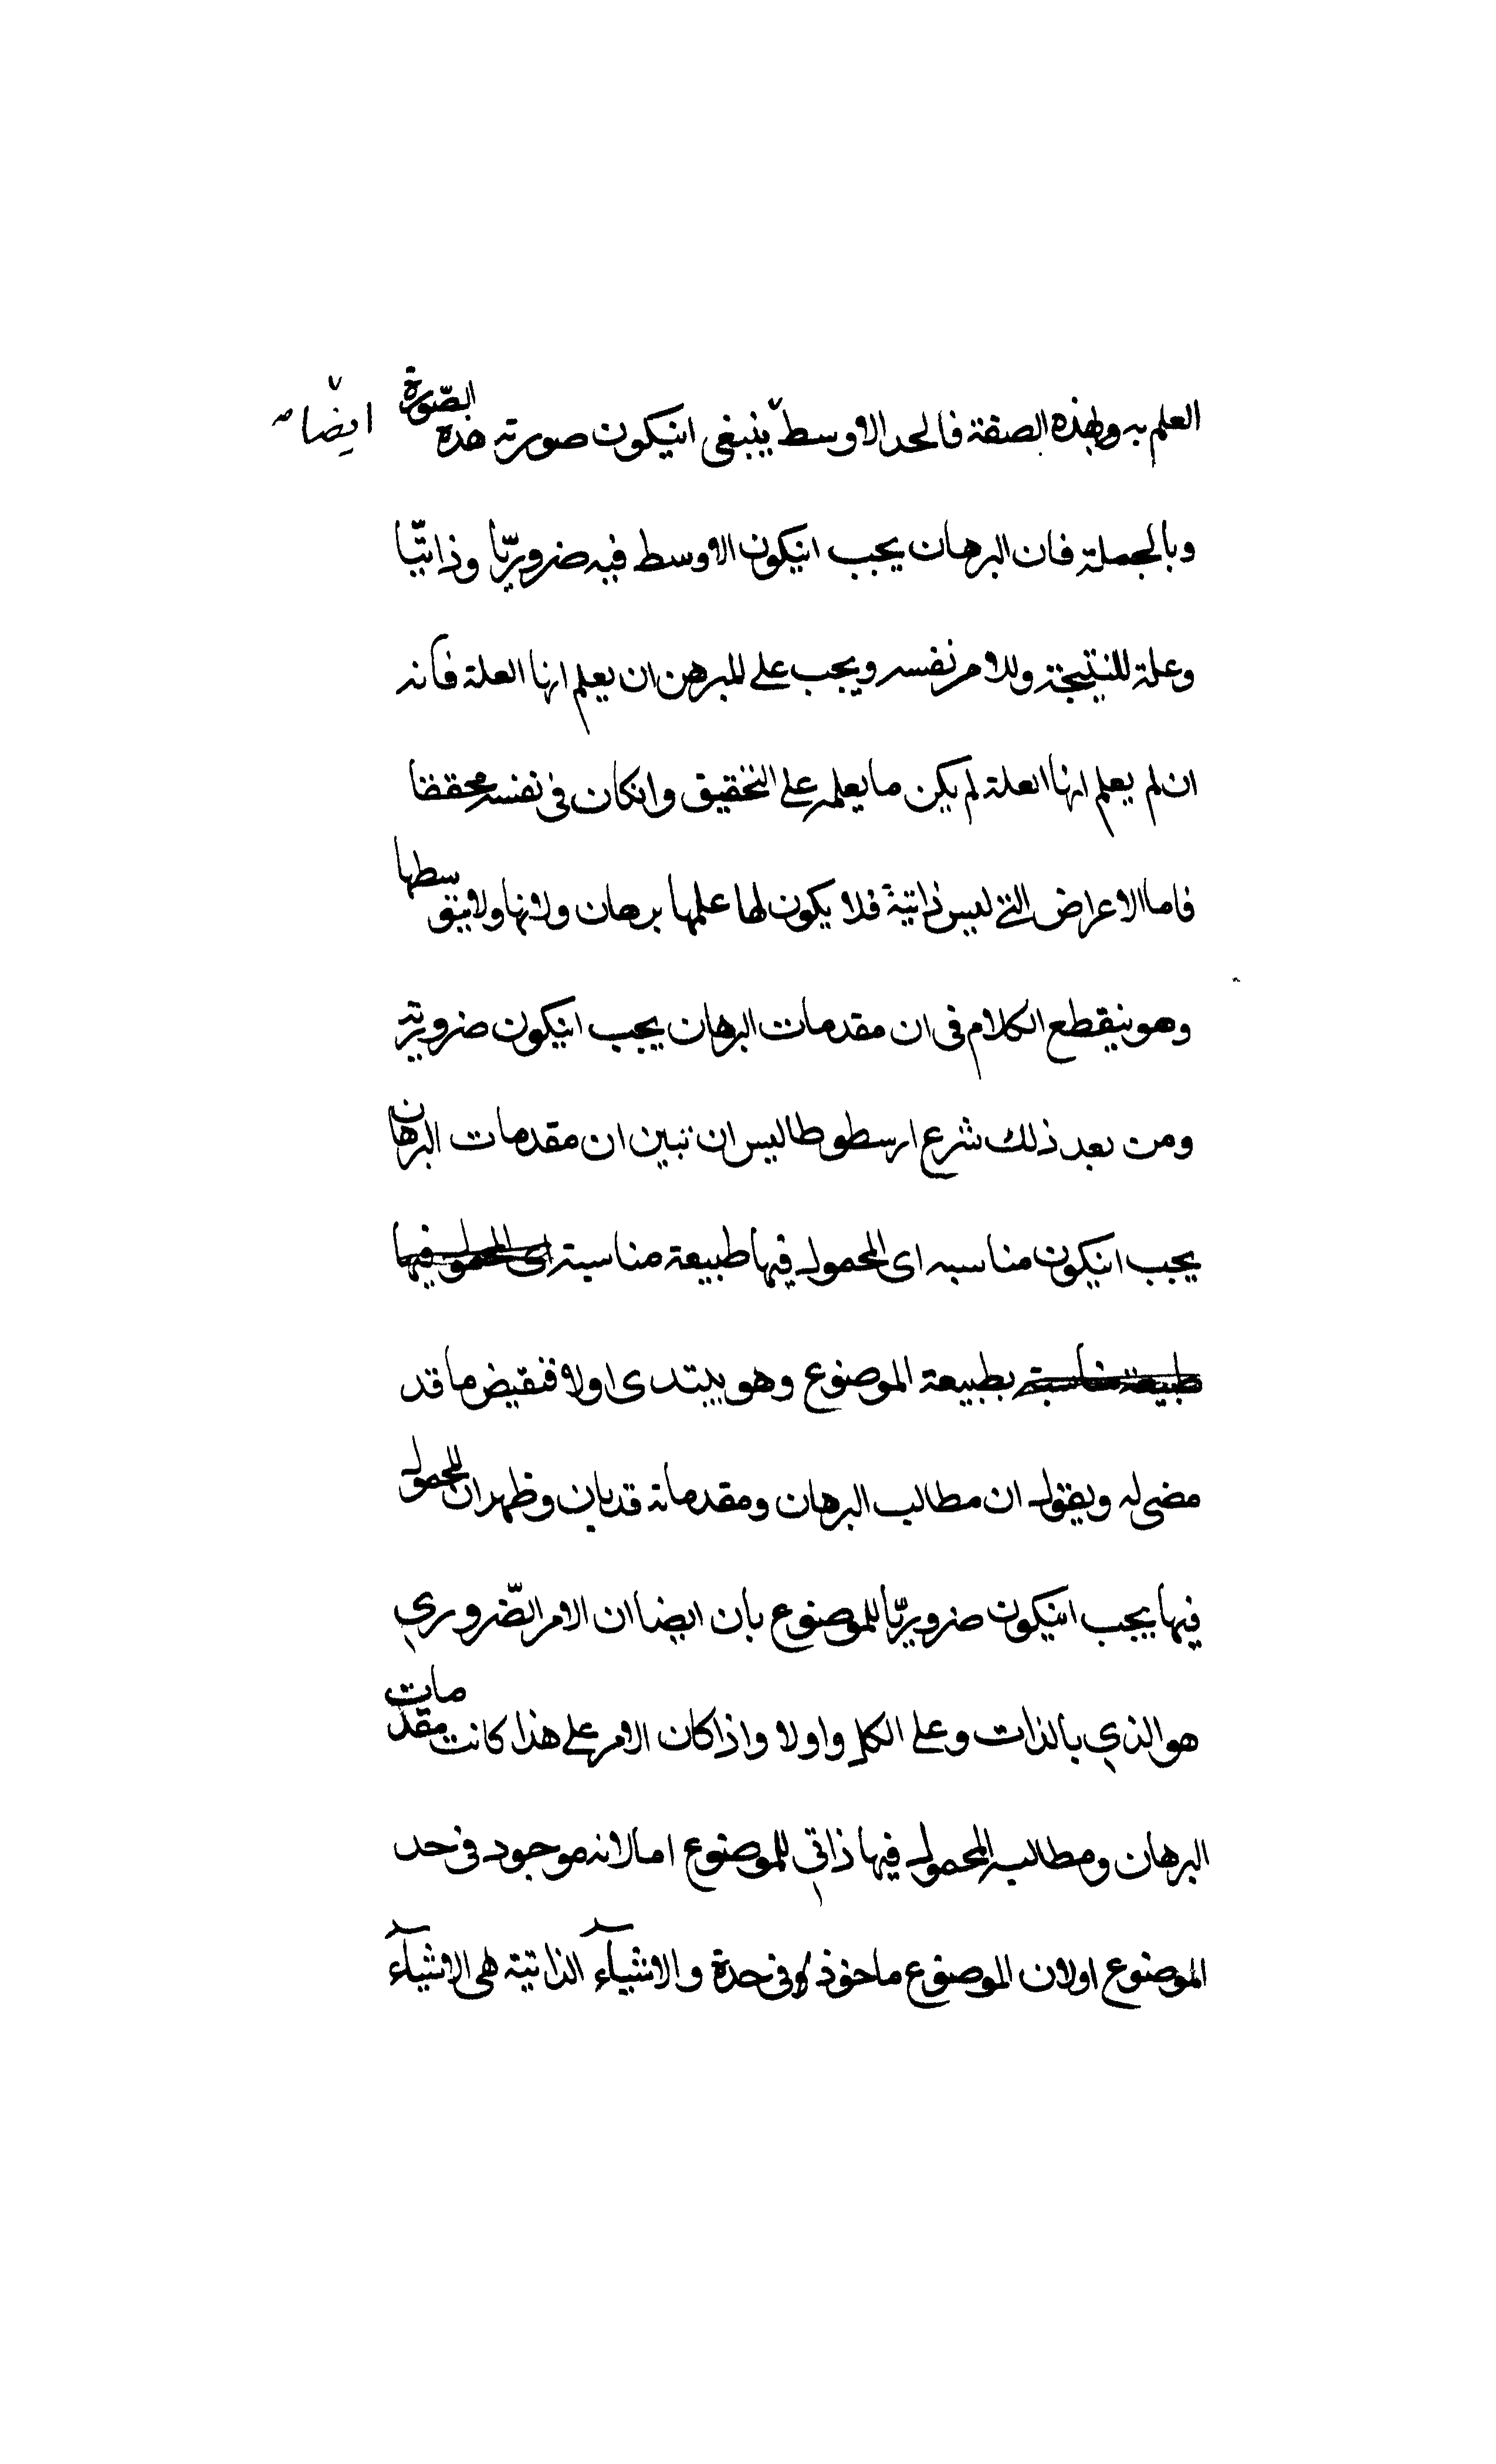 العلم به وبهذه الصفة فالحد الاوسط ينبغى انيكون صورته هذه الصّورة
ايضا صح
وبالجملة فان البرهان يجب انيكون الاوسط فيه ضروريّا وذاتيّا
وعلة للنتيجة وللامر نفسه ويجب على المبرهن ان يعلم انها العلة فانه
ان لم يعلم انها العلة لم يكن ما يعلمه على التحقيق وانكان فى نفسه محققا
فاما الاعراض التى ليس ذاتية فلا يكون لها علمها برهان ولانها ولا بتوسطها
وهو يقطع الكلام فى ان مقدمات البرهان يجب انيكون ضرورية
ومن بعد ذلك شرع ارسطوطاليس ان تبين ان مقدمات البرهان
يجب انيكون مناسبه اى المحمول فيها طبيعة مناسبة اى المحمول فيها
طبيعة مناسبة بطبيعة الموضوع وهو يبتدى اولا فنقيض ما قد
مضى له ويقول ان مطالب البرهان ومقدماته قد بان وظهر ان المحمول
فيها يجب انيكون ضروريّا للموضوع بان ايضا ان الامر الضّرورى
هو الذى بالذات وعلى الكل واولا واذا كان الامر على هذا كانت مقدمات
البرهان ومطالبه المحمول فيها ذاتى للموضوع اما لانه موجود فى حد
الموضوع اولان الموضوع ماخوذ فى حدة والاشيآء الذاتية هى الاشيآء